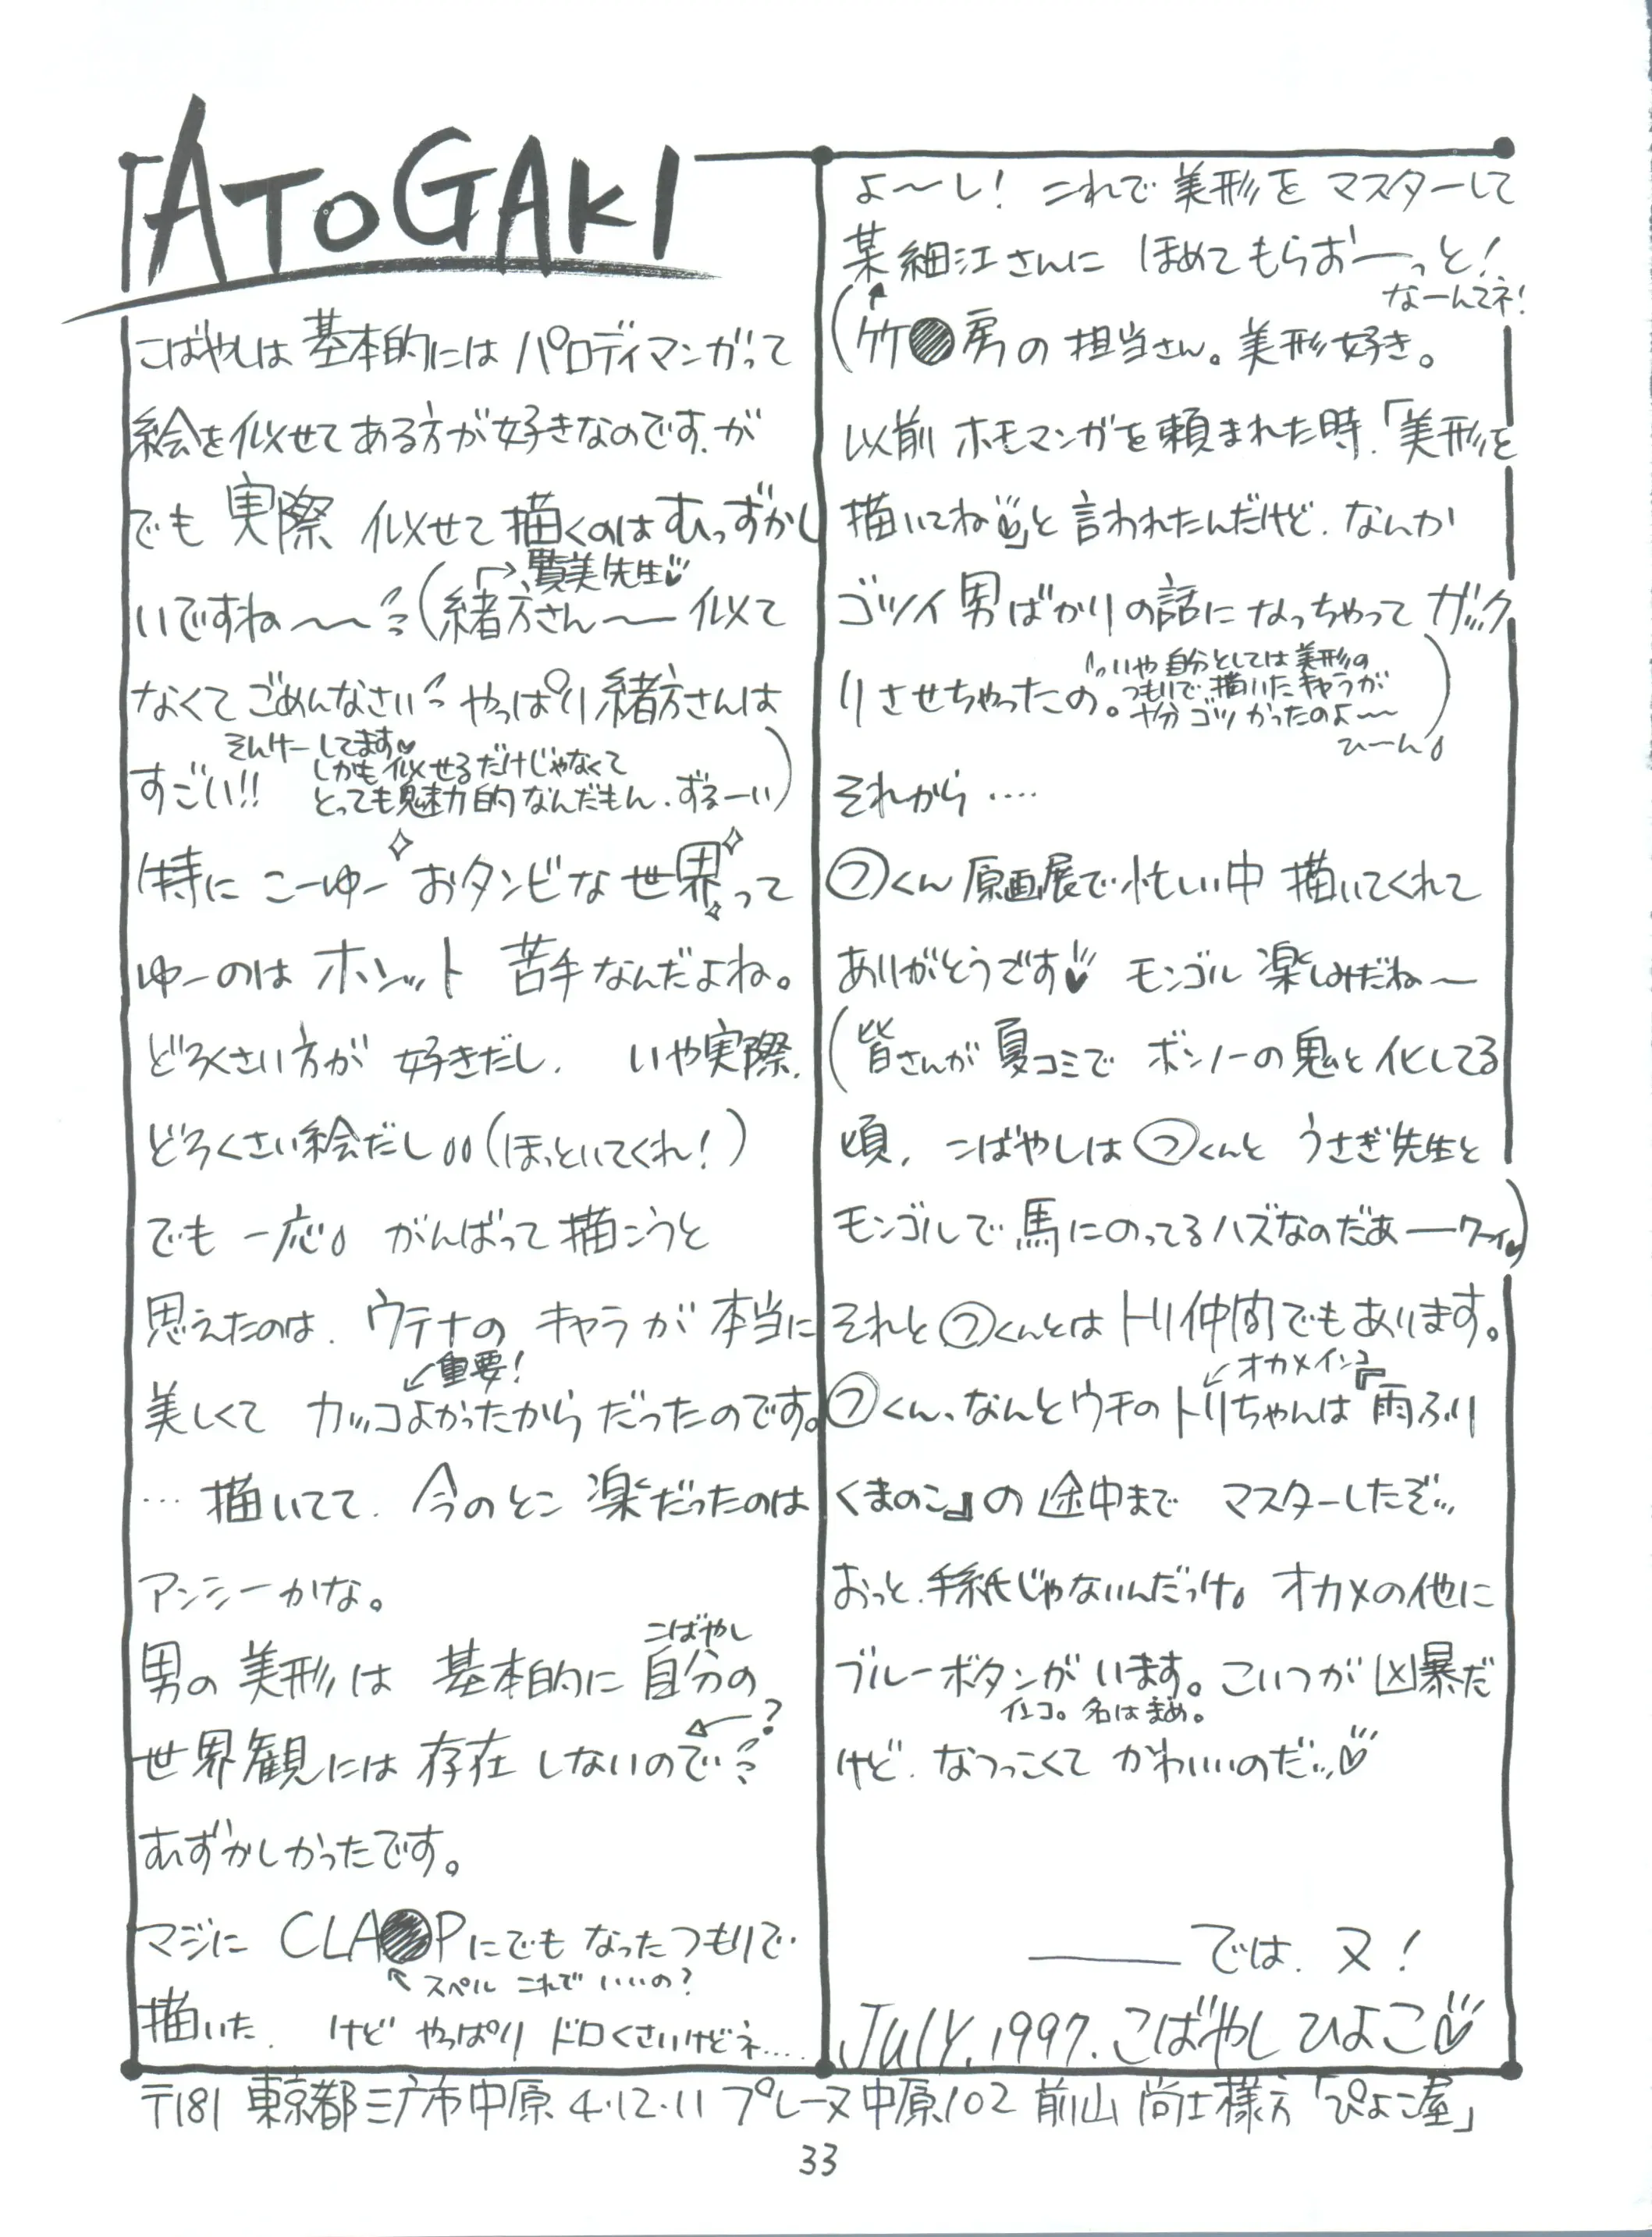 ATOGAKI
こばやしは 基本的には パロディマンガって
絵を似せて ある方が好きなのです.が
でも 実際 似せて 描くのは むっずかし
いですね〜〜 (緒方さん〜 似て
→賢美先生♡
なくて ごめんなさい やっぱり 緒方さんは
すごい!!
そんけーしてます♡
しかも似せるだけじゃなくて
とっても魅力的なんだもん.ずるーい)
特に こーゆー おタンビな 世界って
ゆーのは ホンット 苦手なんだよね。
どろくさい方が 好きだし. いや実際.
どろくさい絵だし (ほっといてくれ!)
でも 一応 がんばって描こうと
思えたのは. ウテナの キャラが 本当に
↙重要!
美しくて カッコよかったから だったのです。
… 描いてて. 今のとこ 楽だったのは
アンシーかな。
こばやし
男の 美形は 基本的に 自分の
世界観には 存在 しないので
←?
むずかしかったです。
マジに CLA●Pにでも なったつもりで.
↖スペル これで いいの?
描いた. けど やっぱり ドロくさいけどネ....
よ〜し! これで 美形を マスターして
某細江さんに ほめてもらおーーっと!
なーんてネ!
(竹●房の 担当さん。美形好き。
以前 ホモマンガを頼まれた時.「美形を
描いてね♡」と 言われたんだけど. なんか
ゴツイ 男ばかりの 話に なっちゃって ガック
リさせちゃったの。
いや 自分としては 美形の
つもりで.描いた キャラが
十分 ゴツかったのよ〜
ひーん)
それから ....
㋫くん 原画展で 忙しい中 描いてくれて
ありがとうです♡ モンゴル 楽しみだね〜
(皆さんが 夏コミで ボンノーの 鬼と化してる
頃, こばやしは ㋫くんと うさぎ先生と
モンゴルで 馬にのってるハズなのだあーーワーイ♡)
それと ㋫くんとは トリ仲間でもあります。
↙オカメインコ
㋫くん、なんと ウチの トリちゃんは『雨ふり
くまのこ』の 途中まで マスターしたぞ
おっと.手紙じゃないんだっけ。 オカメの他に
ブルーボタンが います。こいつが 凶暴だ
インコ。名はまめ。
けど. なつっこくて かわいいのだ♡
―― では. 又!
July.1997. こばやし ひよこ♡
〒181 東京都三广市中原 4・12・11 プレーヌ中原102 前山 尚士様方「ぴよこ屋」
33